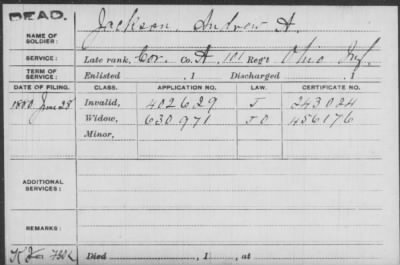 DEAD.
NAME OF SOLDIER: Jackson, Andrew A.
SERVICE: Late rank, Cor. Co. A, 101 Reg't Ohio Inf.
TERM OF SERVICE: Enlisted , 1 Discharged , 1
DATE OF FILING. CLASS. APPLICATION NO. LAW. CERTIFICATE NO.
1880 June 28 Invalid, 402629 J 243024
Widow, 630971 J O 456176
Minor,
ADDITIONAL SERVICES:
REMARKS:
Died , 1 , at